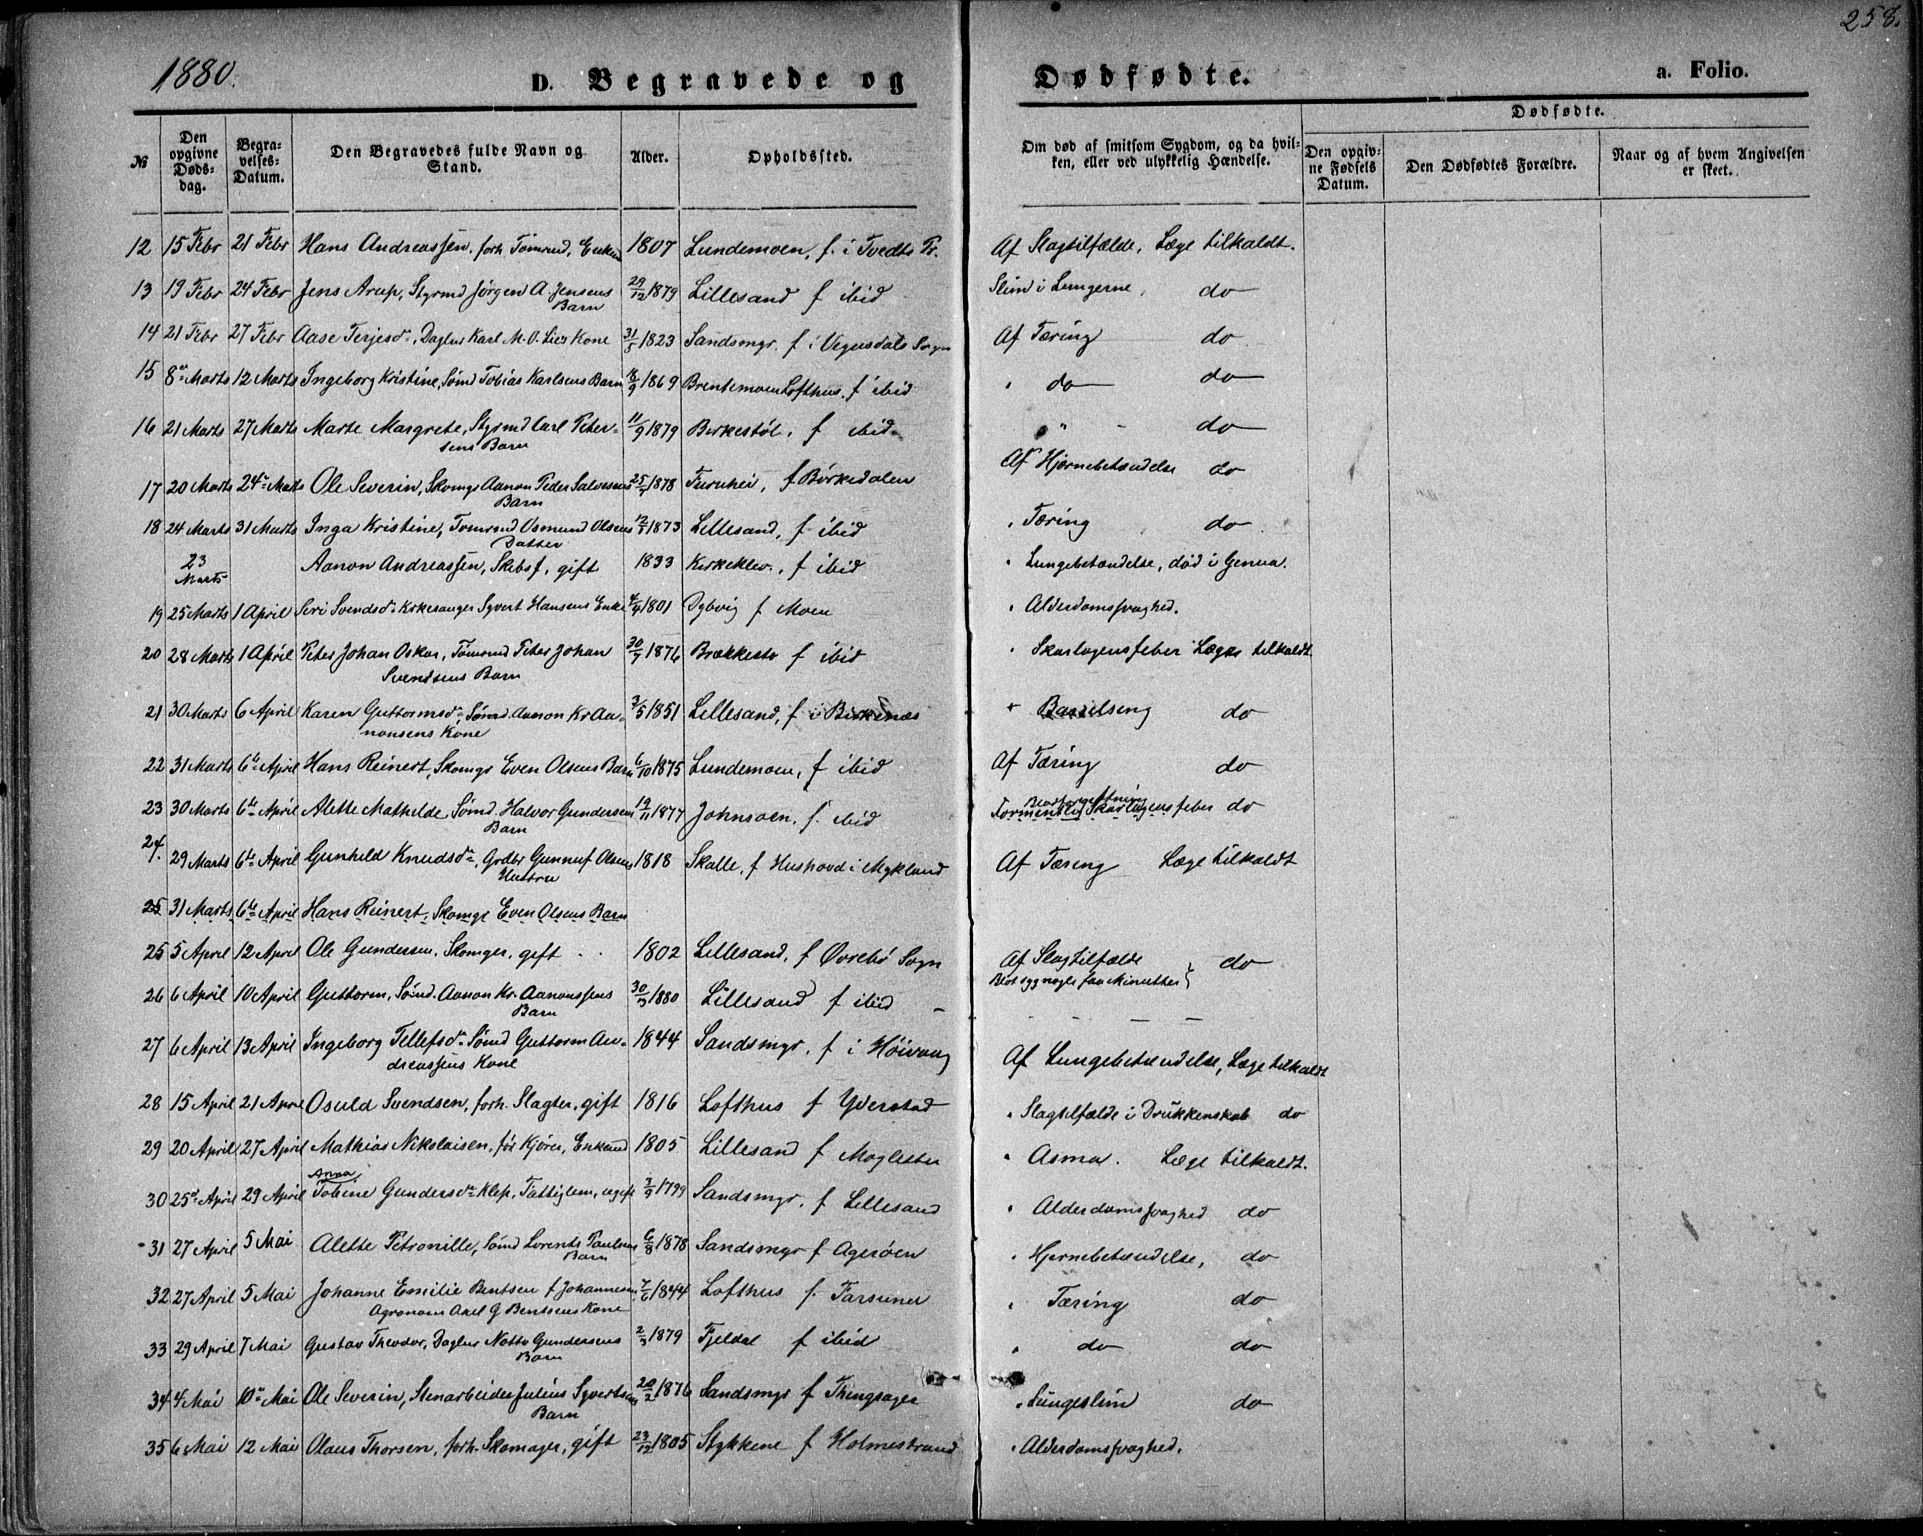 258.
1880.
D. Begravede og Dødfødte.
a. Folio.
№
Den opgivne Døds-dag.
Begra-velses-Datum.
Den Begravedes fulde Navn og Stand.
Alder.
Opholdssted.
Om død af smitsom Sygdom, og da hvil-ken, eller ved ulykkelig Hændelse.
Dødfødte.
Den opgiv-ne Fødsels Datum.
Den Dødfødtes Forældre.
Naar og af hvem Angivelsen er skeet.
12 15 Febr 21 Febr Hans Andreassen, forh. Tømrmd, Enkem 1807 Lundemoen, f. i Tvedts Pr. Af Slagtilfælde, Læge tilkaldt.
13 19 Febr 24 Febr Jens Arup, Styrmd Jørgen A. Jensens 29/12 1879 Lillesand f ibid Slim i Lungerne, do
Barn
14 21 Febr 27 Febr Aase Terjesd., Daglnr Karl M. O. Lies Kone 31/5 1823 Sandsmgr. f i Vegusdals Sogn Af Tæring do
15 8de Marts 12 Marts Ingeborg Kristine, Sømd Tobias Karlsens Barn 18/9 1869 Brentemoen Lofthus. f ibid " do do
16 21 Marts 27 Marts Marte Margrete, Styrmd Carl Peter- 11/9 1879 Birkestøl, f ibid " do
sens Barn
17 20 Marts 24de Marts Ole Severin, Skomgr Aanon Peder Salvesens 1878 Furuhei, f Birkedalen Af Hjernebetændelse do
Barn
18 24 Marts 31 Marts Inga Kristine, Tømrmd Osmund Olsens 1873 Lillesand, f ibid " Tæring do
Datter
23 Marts Aanon Andreassen, Skibsf, gift 1833 Kirkeklev, f ibid " Lungebetændelse, død i Genua.
19 25 Marts 1 April Siri Svendsd. Kirkesanger Syvert Hansens Enke 1801 Dybvig f Moen " Alderdomssvaghed.
20 28 Marts 1 April Peter Johan Oskar, Tømrmd Peter Johan 30/7 1876 Brækkestø f ibid " Skarlagensfeber Læge tilkaldt
Svendsens Barn
21 30 Marts 6 April Karen Guttormsd. Sømd. Aanon Kr Aa- 3/5 1851 Lillesand, f i Birkenæs " Barselseng do
nonsens Kone
22 31 Marts 6te April Hans Reinert, Skomgr Even Olsens Barn 6/10 1875 Lundemoen, f ibid Af Tæring do
23 30 Marts 6te April Alette Mathilde, Sømd. Halvor Gundersens 19/11 1877 Johnsoen, f. ibid Formentlig Skarlagensfeber do
Barn
24. 29 Marts 6te April Gunhild Knudsd., Grdbr Gunnuf Olsens 1818 Skalle, f Hushovd i Mykland Af Tæring Læge tilkaldt
Hustru
25 31 Marts 6te April Hans Reinert, Skomgr Even Olsens Barn
25 5 April 12 April Ole Gundersen, Skomger, gift 1802 Lillesand, f Øvrebø Sogn Af Slagtilfælde do
Blot syg nogle faa Minutter
26 6 April 10 April Guttorm, Sømd. Aanon Kr. Aanonssens 30/3 1880 Lillesand f ibid
Barn
27 6 April 13 April Ingeborg Tellefsd. Sømd Guttorm An- 1844 Sandsmgr, f i Høivaag Af Lungebetændelse, Læge tilkaldt
dreassens Kone
28 15 April 21 April Osuld Svendsen, forh. Slagter, gift 1816 Lofthus f Yderstad " Slagtilfælde i Drukkenskab do
29 20 April 27 April Mathias Nikolaisen, før Kjører, Enkemd 1805 Lillesand f Moglestu " Asma. Læge tilkaldt.
Anna
30 25de April 29 April Tobine Gundersd. Klep, Fattiglem, ugift 3/9 1799 Sandsmgr, f Lillesand " Alderdomssvaghed do
31 27 April 5 Mai Alette Petronille, Sømd Lorents Paulsens 6/8 1878 Sandsmgr f Agerøen " Hjernebetændelse, do
Barn
32 27 April 5 Mai Johanne Emilie Bentsen f Johannesen 7/6 1844 Lofthus f. Farsund " Tæring do
Agronom Axel G Bentsens Kone
33 29 April 7 Mai Gustav Theodor, Daglnr Notto Gundersens 2/3 1879 Fjeldal f ibid " do do
Barn
34 4 Mai 10de Mai Ole Severin, Stenarbeider Julius Syvertsens 20/2 1876 Sandsmgr f Thingsager " Lungeslim do
Barn
35 6 Mai 12 Mai Olaus Thorsen, forh. Skomager, gift 23/12 1805 Stykkene f Holmestrand " Alderdomssvaghed.